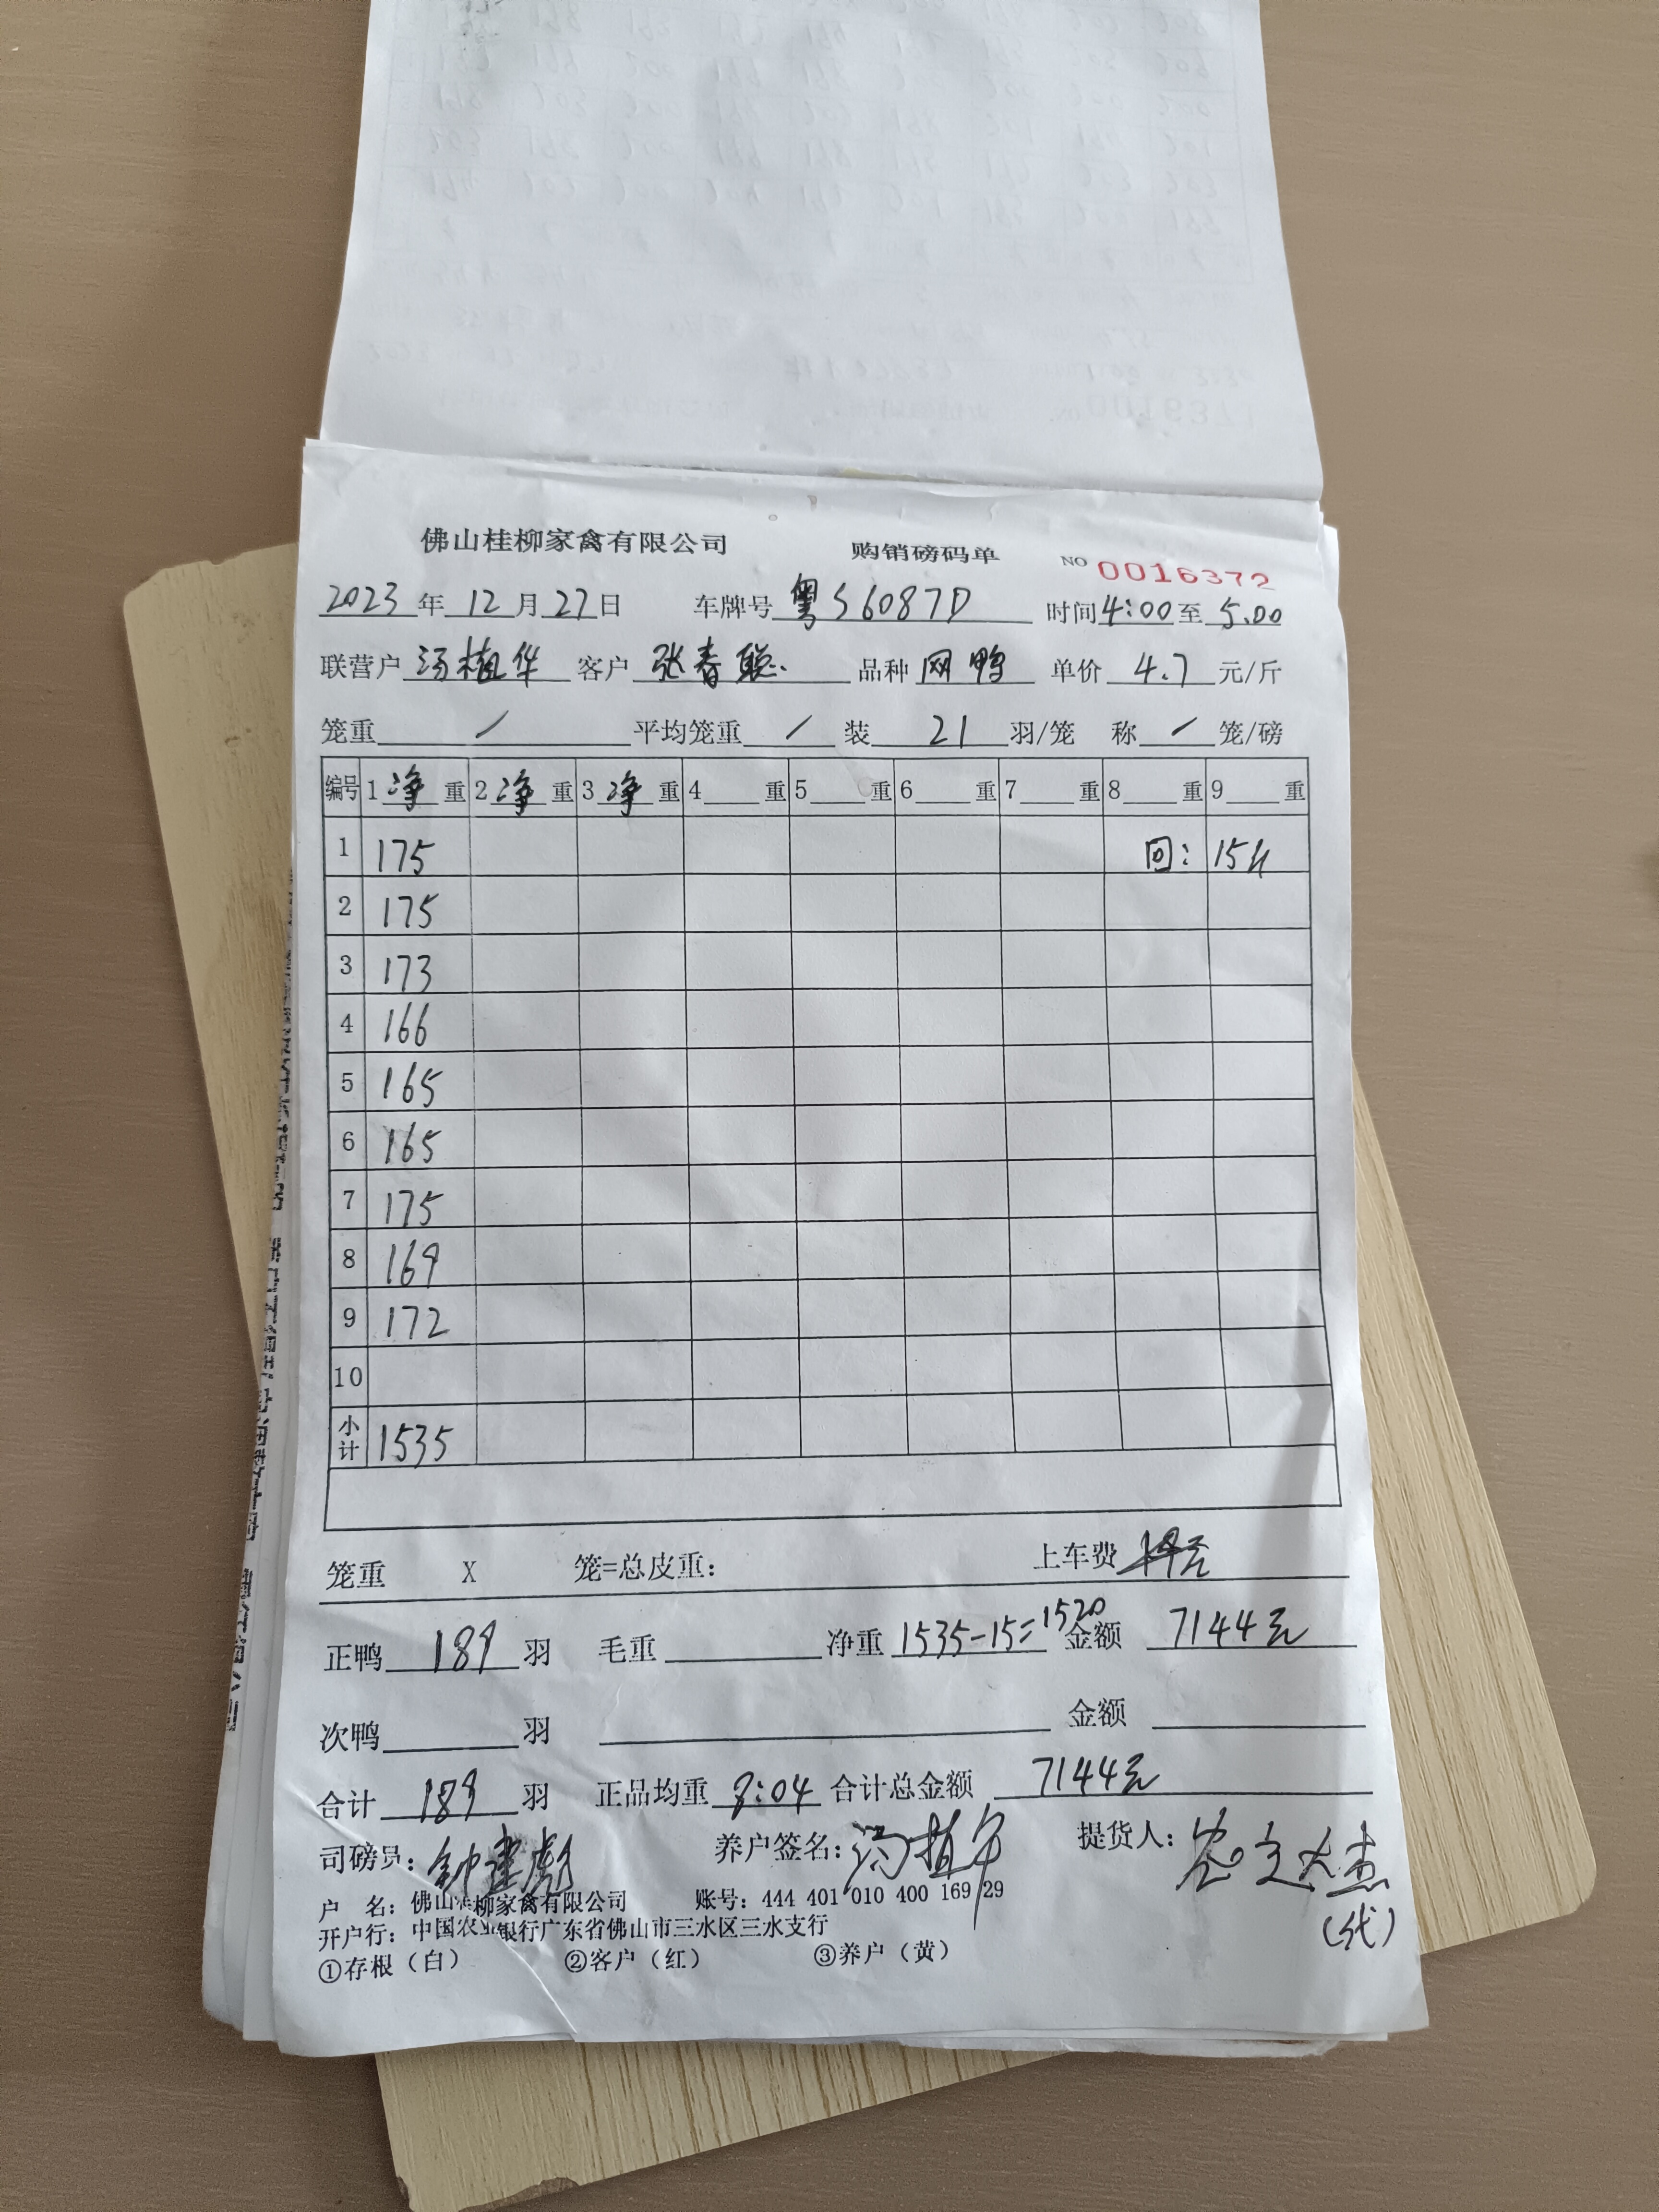 佛山桂柳家禽有限公司 购销磅码单 NO 0016372
2023年12月27日 车牌号 粤S6087D 时间4:00至5.00
联营户 汤植华 客户 张春聪 品种 网鸭 单价 4.7 元/斤
笼重 / 平均笼重 / 装 21 羽/笼 称 / 笼/磅
编号 1净重 2净重 3净重 4重 5重 6重 7重 8重 9重
1 175 回: 15斤
2 175
3 173
4 166
5 165
6 165
7 175
8 169
9 172
10
小计 1535
笼重 X 笼=总皮重: 上车费
正鸭 189 羽 毛重 净重 1535-15=1520 金额 7144元
次鸭 羽 金额
合计 189 羽 正品均重 8:04 合计总金额 7144元
司磅员: 钟建彪 养户签名: 汤植华 提货人:
(代)
户 名: 佛山桂柳家禽有限公司 账号: 444 401 010 400 169 29
开户行: 中国农业银行广东省佛山市三水区三水支行
①存根（白） ②客户（红） ③养户（黄）